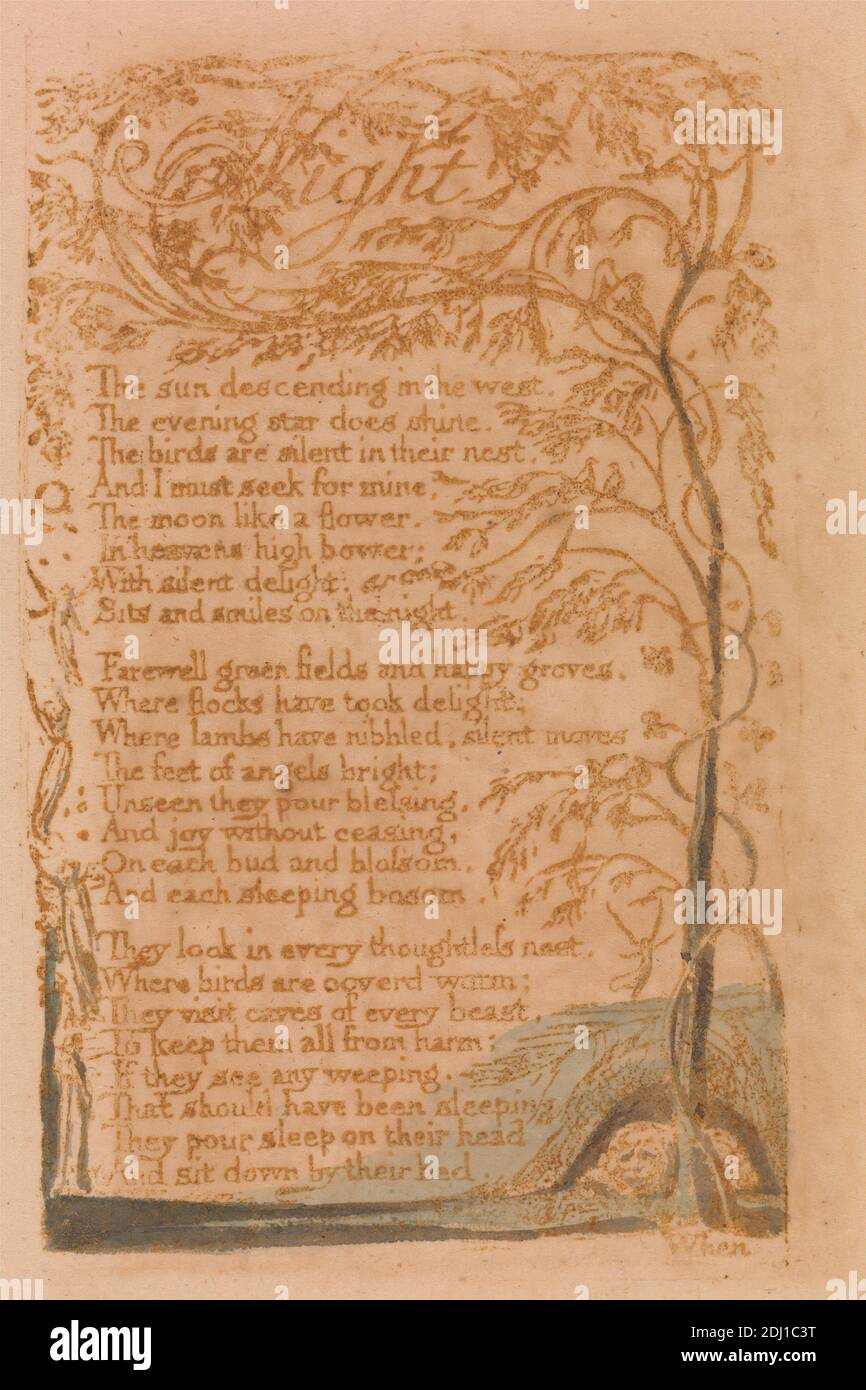 Night
The sun descending in the west.
The evening star does shine.
The birds are silent in their nest.
And I must seek for mine,
The moon like a flower.
In heavens high bower;
With silent delight,
Sits and smiles on the night.
Farewell green fields and happy groves,
Where flocks have took delight;
Where lambs have nibbled, silent moves
The feet of angels bright;
Unseen they pour blessing,
And joy without ceasing,
On each bud and blossom,
And each sleeping bosom.
They look in every thoughtless nest,
Where birds are coverd warm;
They visit caves of every beast,
To keep them all from harm;
If they see any weeping,
That should have been sleeping
They pour sleep on their head
And sit down by their bed.
When
alamy
Image ID: 2DJ1C3T
www.alamy.com